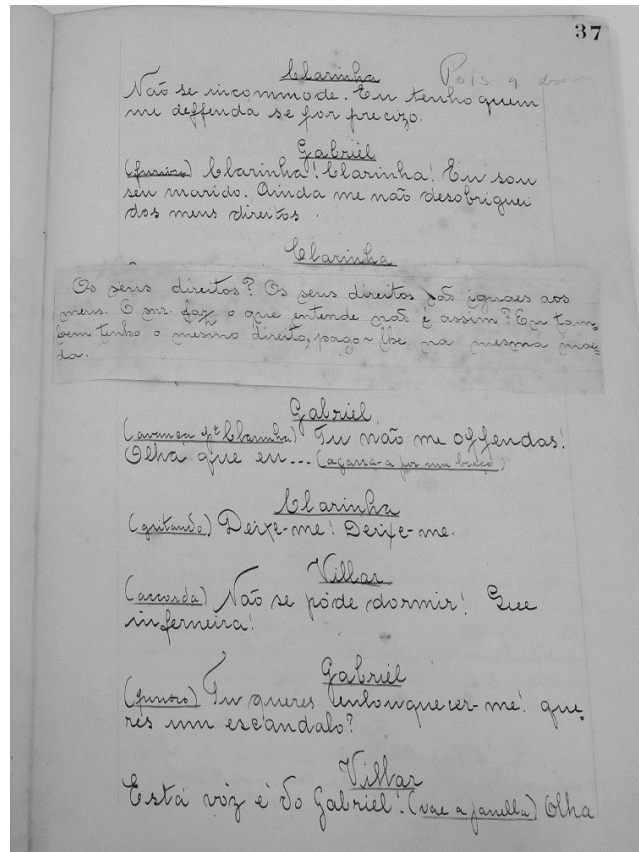 37
Clarinha
Pois q
Não se incommode. Eu tenho quem
me deffenda se for precizo.
Gabriel
(furioso) Clarinha! Clarinha! Eu sou
seu marido. Ainda me não desobriguei
dos meus direitos.
Clarinha
Os seus direitos? Os seus direitos são iguaes aos
meus. O snr. faz o que entende não é assim? Eu tam-
bem tenho o mesmo direito, pago-lhe na mesma moe-
da.
Gabriel
(avança pª Clarinha) Tu não me offendas!
Olha que eu... (agarra-a por um braço)
Clarinha
(gritando) Deixe-me! Deixe-me.
Villar
(accorda) Não se póde dormir! Que
inferneira!
Gabriel
(furioso) Tu queres enlouquecer-me! que-
res um escandalo?
Villar
Esta vóz é do Gabriel! (vae a janella) Olha